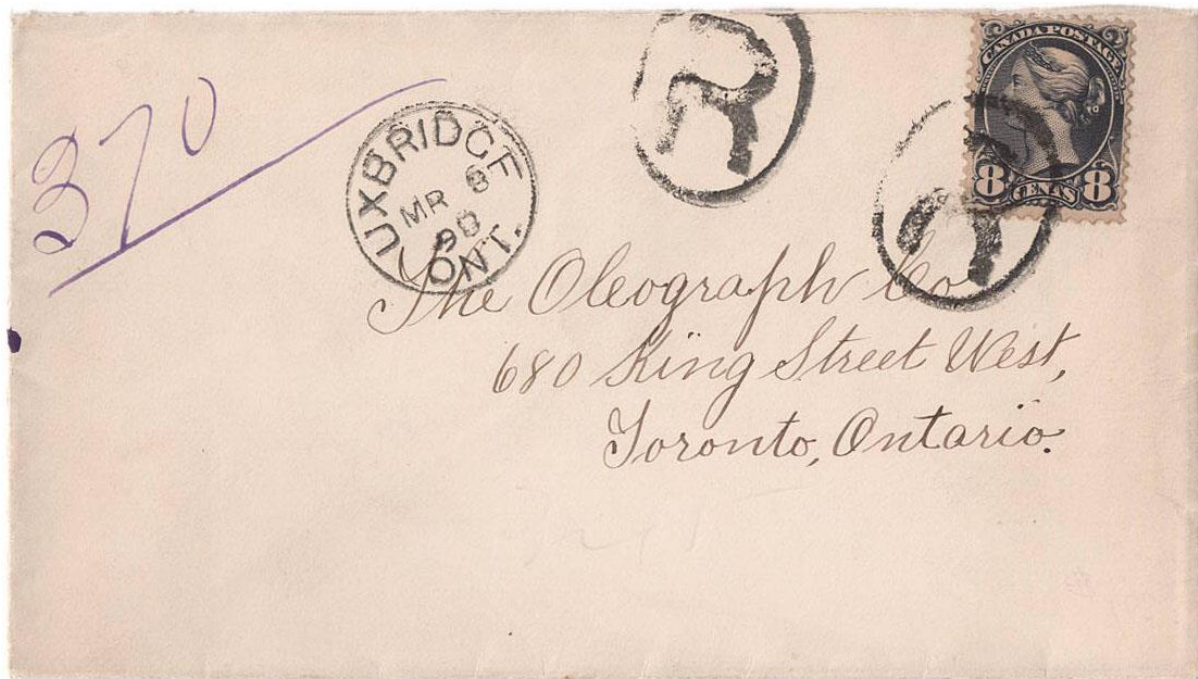 370
UXBRIDGE
MR 8
98
ONT.
R
R
CANADA POSTAGE
8 CENTS 8
The Oleograph Co
680 King Street West,
Toronto, Ontario.